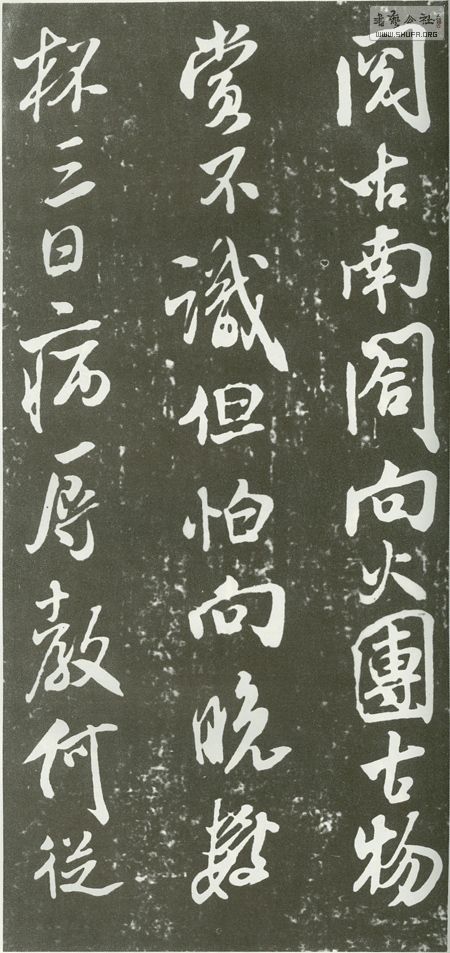 閱古南閤向火團古物
賞不識但怕向晚數
杯三日病辱教何從
書藝公社
WWW.SHUFA.ORG